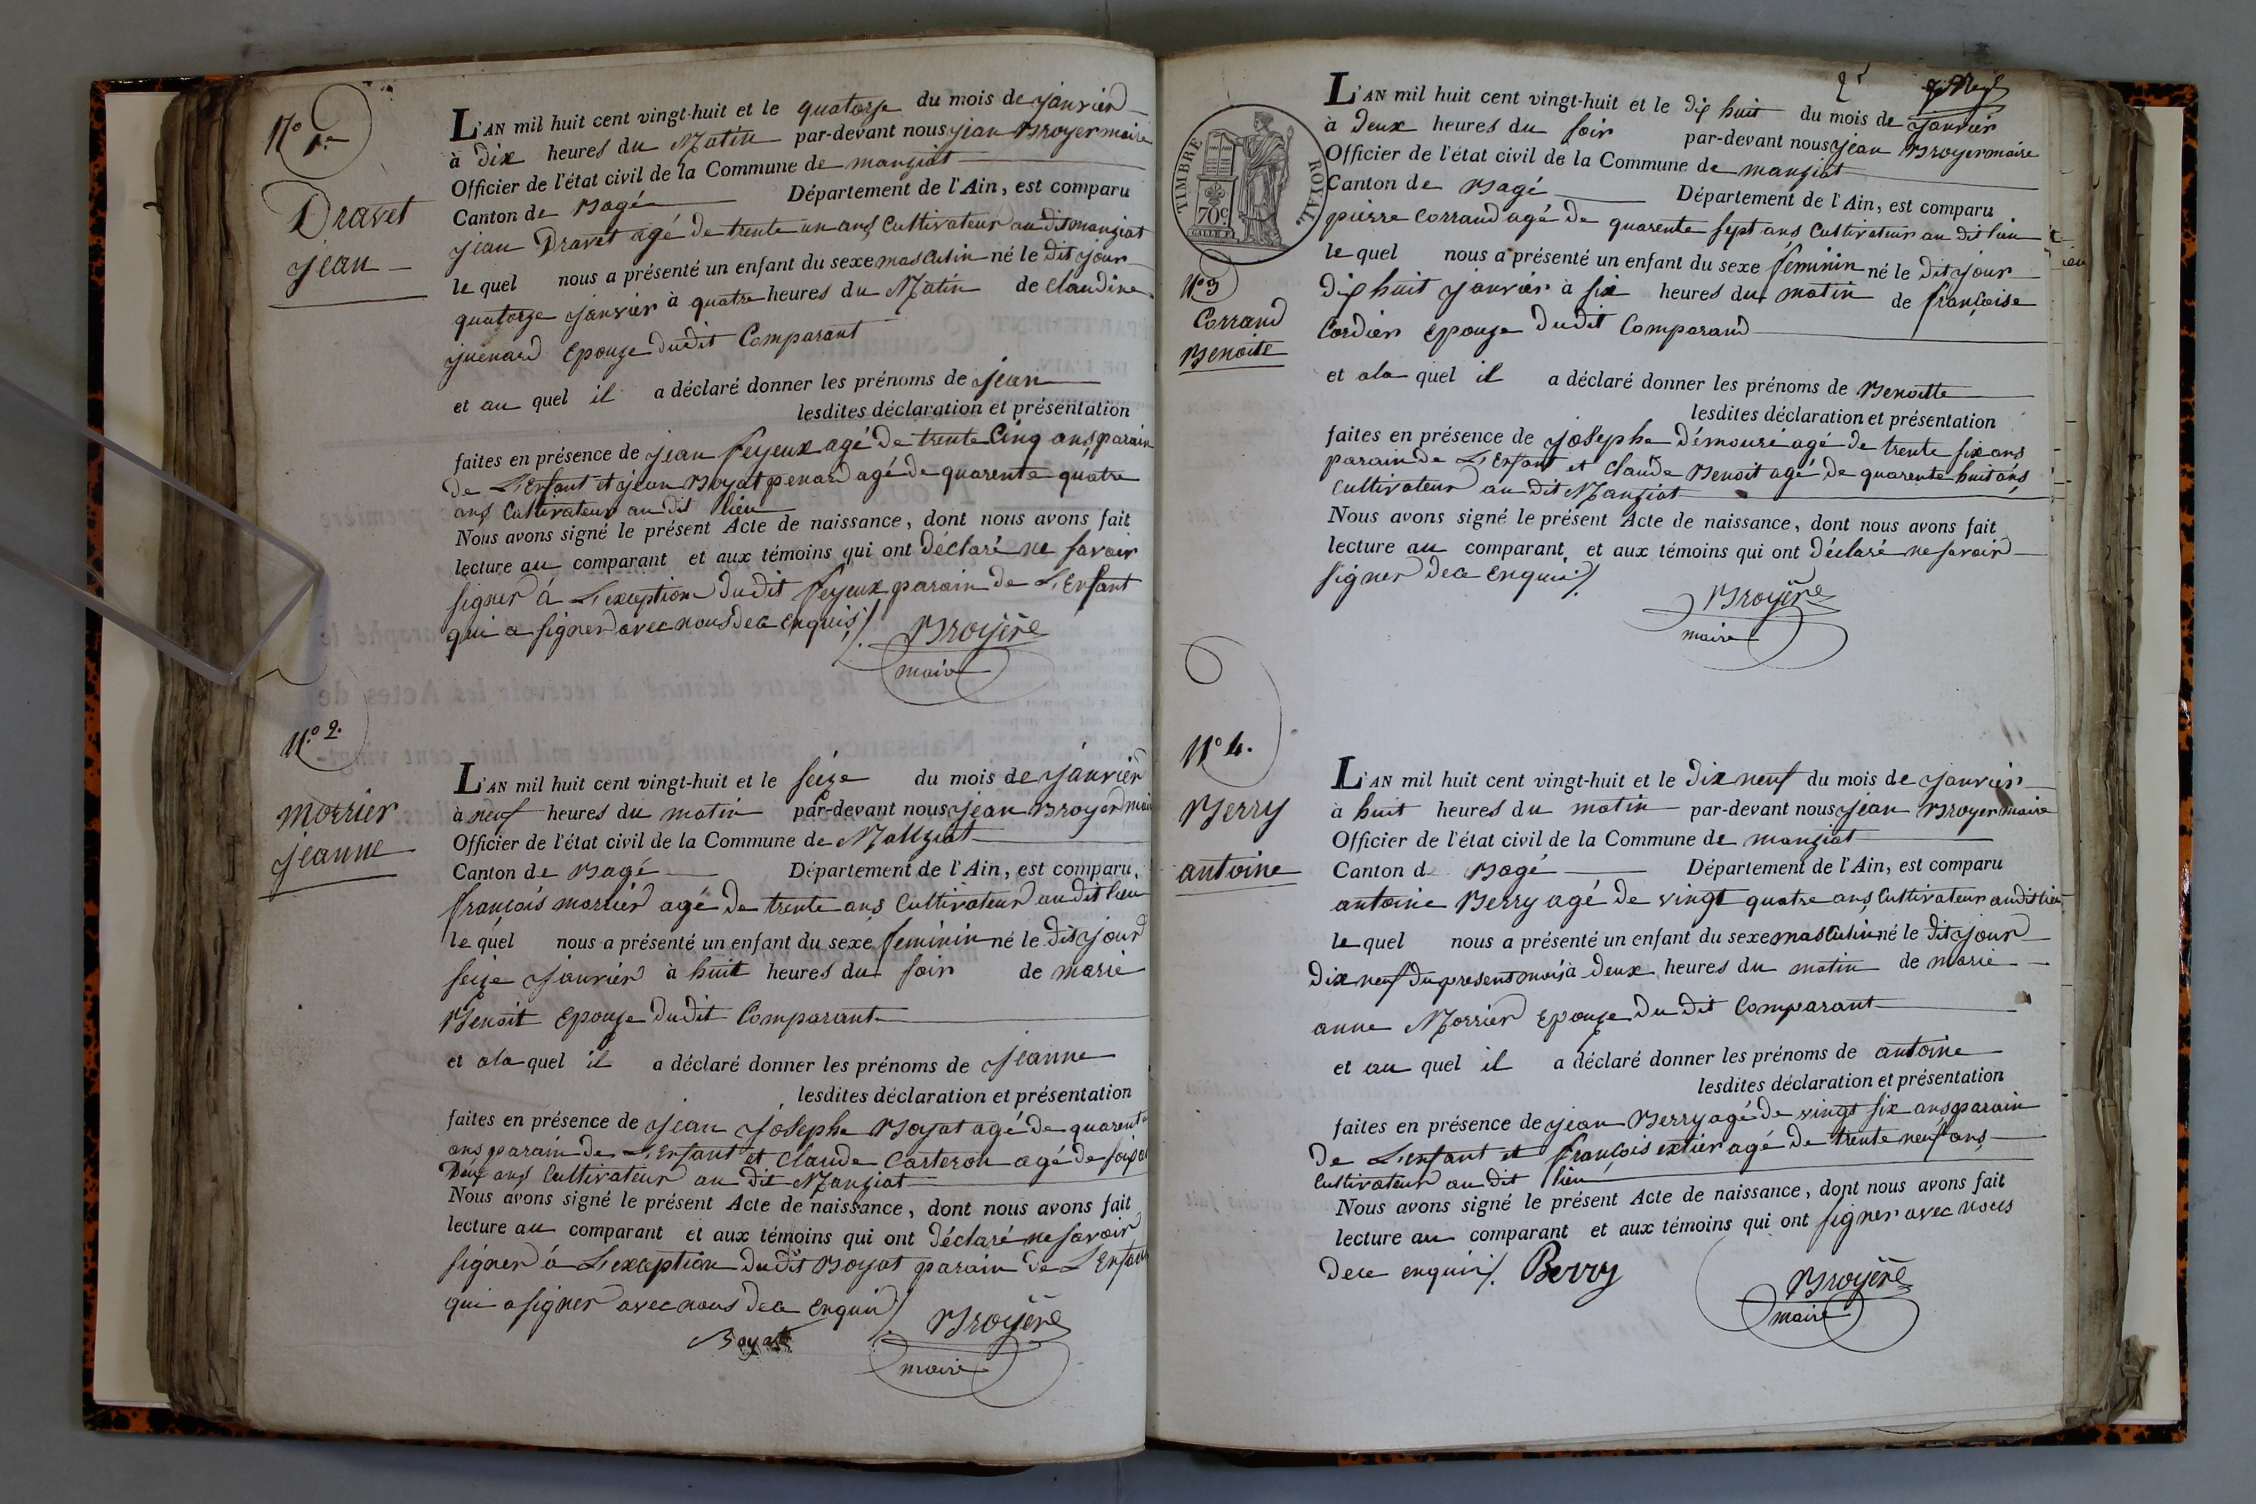 N.o 1.er
Dravet
jean
L'AN mil huit cent vingt-huit et le quatorze du mois de janvier
à dix heures du Matin par-devant nous jean Broyer maire
Officier de l'état civil de la Commune de manziat
Canton de Bagé Département de l'Ain, est comparu
jean Dravet agé de trente un ans Cultivateur au dit manziat
le quel nous a présenté un enfant du sexe masculin né le dit jour
quatorze janvier à quatre heures du Matin de Claudine
juenard Epouze du dit Comparant
et au quel il a déclaré donner les prénoms de jean
lesdites déclaration et présentation
faites en présence de jean feyeux agé de trente Cinq ans parain
de L'Enfant et jean Boyat penard agé de quarente quatre
ans Cultivateur au dit lieu
Nous avons signé le présent Acte de naissance, dont nous avons fait
lecture au comparant et aux témoins qui ont déclaré ne savoir
signer à L'exception du dit feyeux parain de L'Enfant
qui a signer avec nous de ce Enquis /.
Broyere
maire
N.o 2.
morrier
jeanne
L'AN mil huit cent vingt-huit et le seize du mois de janvier
à neuf heures du matin par-devant nous jean Broyer mair
Officier de l'état civil de la Commune de Manziat
Canton de Bagé Département de l'Ain, est comparu
françois morrier agé de trente ans Cultivateur au dit lieu
le quel nous a présenté un enfant du sexe feminin né le dit jour
seize janvier à huit heures du soir de marie
Benoit Epouze du dit Comparant
et a la quel il a déclaré donner les prénoms de jeanne
lesdites déclaration et présentation
faites en présence de jean josephe Boyat agé de quarente
ans parain de L'Enfant et Claude Carteron agé de soixa
Deux ans Cultivateur au dit Manziat
Nous avons signé le présent Acte de naissance, dont nous avons fait
lecture au comparant et aux témoins qui ont déclaré ne savoir
signer à L'exception du dit Boyat parain de L'Enfan
qui a signer avec nous de ce Enquis /.
Boyat
Broyere
maire
2
TIMBRE ROYAL
70c
N.o 3
Corrand
Benoite
L'AN mil huit cent vingt-huit et le dix huit du mois de janvier
à deux heures du soir par-devant nous jean Broyer maire
Officier de l'état civil de la Commune de manziat
Canton de Bagé Département de l'Ain, est comparu
pierre Corrand agé de quarente sept ans Cultivateur au dit lieu
le quel nous a présenté un enfant du sexe feminin né le dit jour
dix huit janvier à six heures du matin de françoise
Cordier Epouze du dit Comparand
et a la quel il a déclaré donner les prénoms de Benoitte
lesdites déclaration et présentation
faites en présence de josephe démouré agé de trente six ans
parain de L'Enfant et Claude Benoit agé de quarente huit ans
Cultivateur au dit Manziat
Nous avons signé le présent Acte de naissance, dont nous avons fait
lecture au comparant et aux témoins qui ont déclaré ne savoir
signer de ce Enquis /.
Broyere
maire
N.o 4.
Berry
antoine
L'AN mil huit cent vingt-huit et le dix neuf du mois de janvier
à huit heures du matin par-devant nous jean Broyer maire
Officier de l'état civil de la Commune de manziat
Canton d Bagé Département de l'Ain, est comparu
antoine Berry agé de vingt quatre ans Cultivateur au dit lieu
le quel nous a présenté un enfant du sexe masculin né le dit jour
dix neuf du present mois à deux heures du matin de marie
anne Morrier Epouze du dit Comparant
et au quel il a déclaré donner les prénoms de antoine
lesdites déclaration et présentation
faites en présence de jean Berry agé de vingt six ans parain
de L'enfant et françois extier agé de trente neuf ans
Cultivateur au dit lieu
Nous avons signé le présent Acte de naissance, dont nous avons fait
lecture au comparant et aux témoins qui ont signer avec nous
de ce enquis /. Berry
Broyere
maire